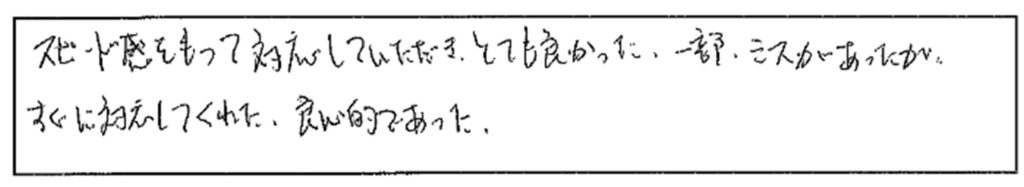 スピード感をもって対応していただき、とても良かった、一部、ミスがあったが、
すぐに対応してくれた、良心的であった、